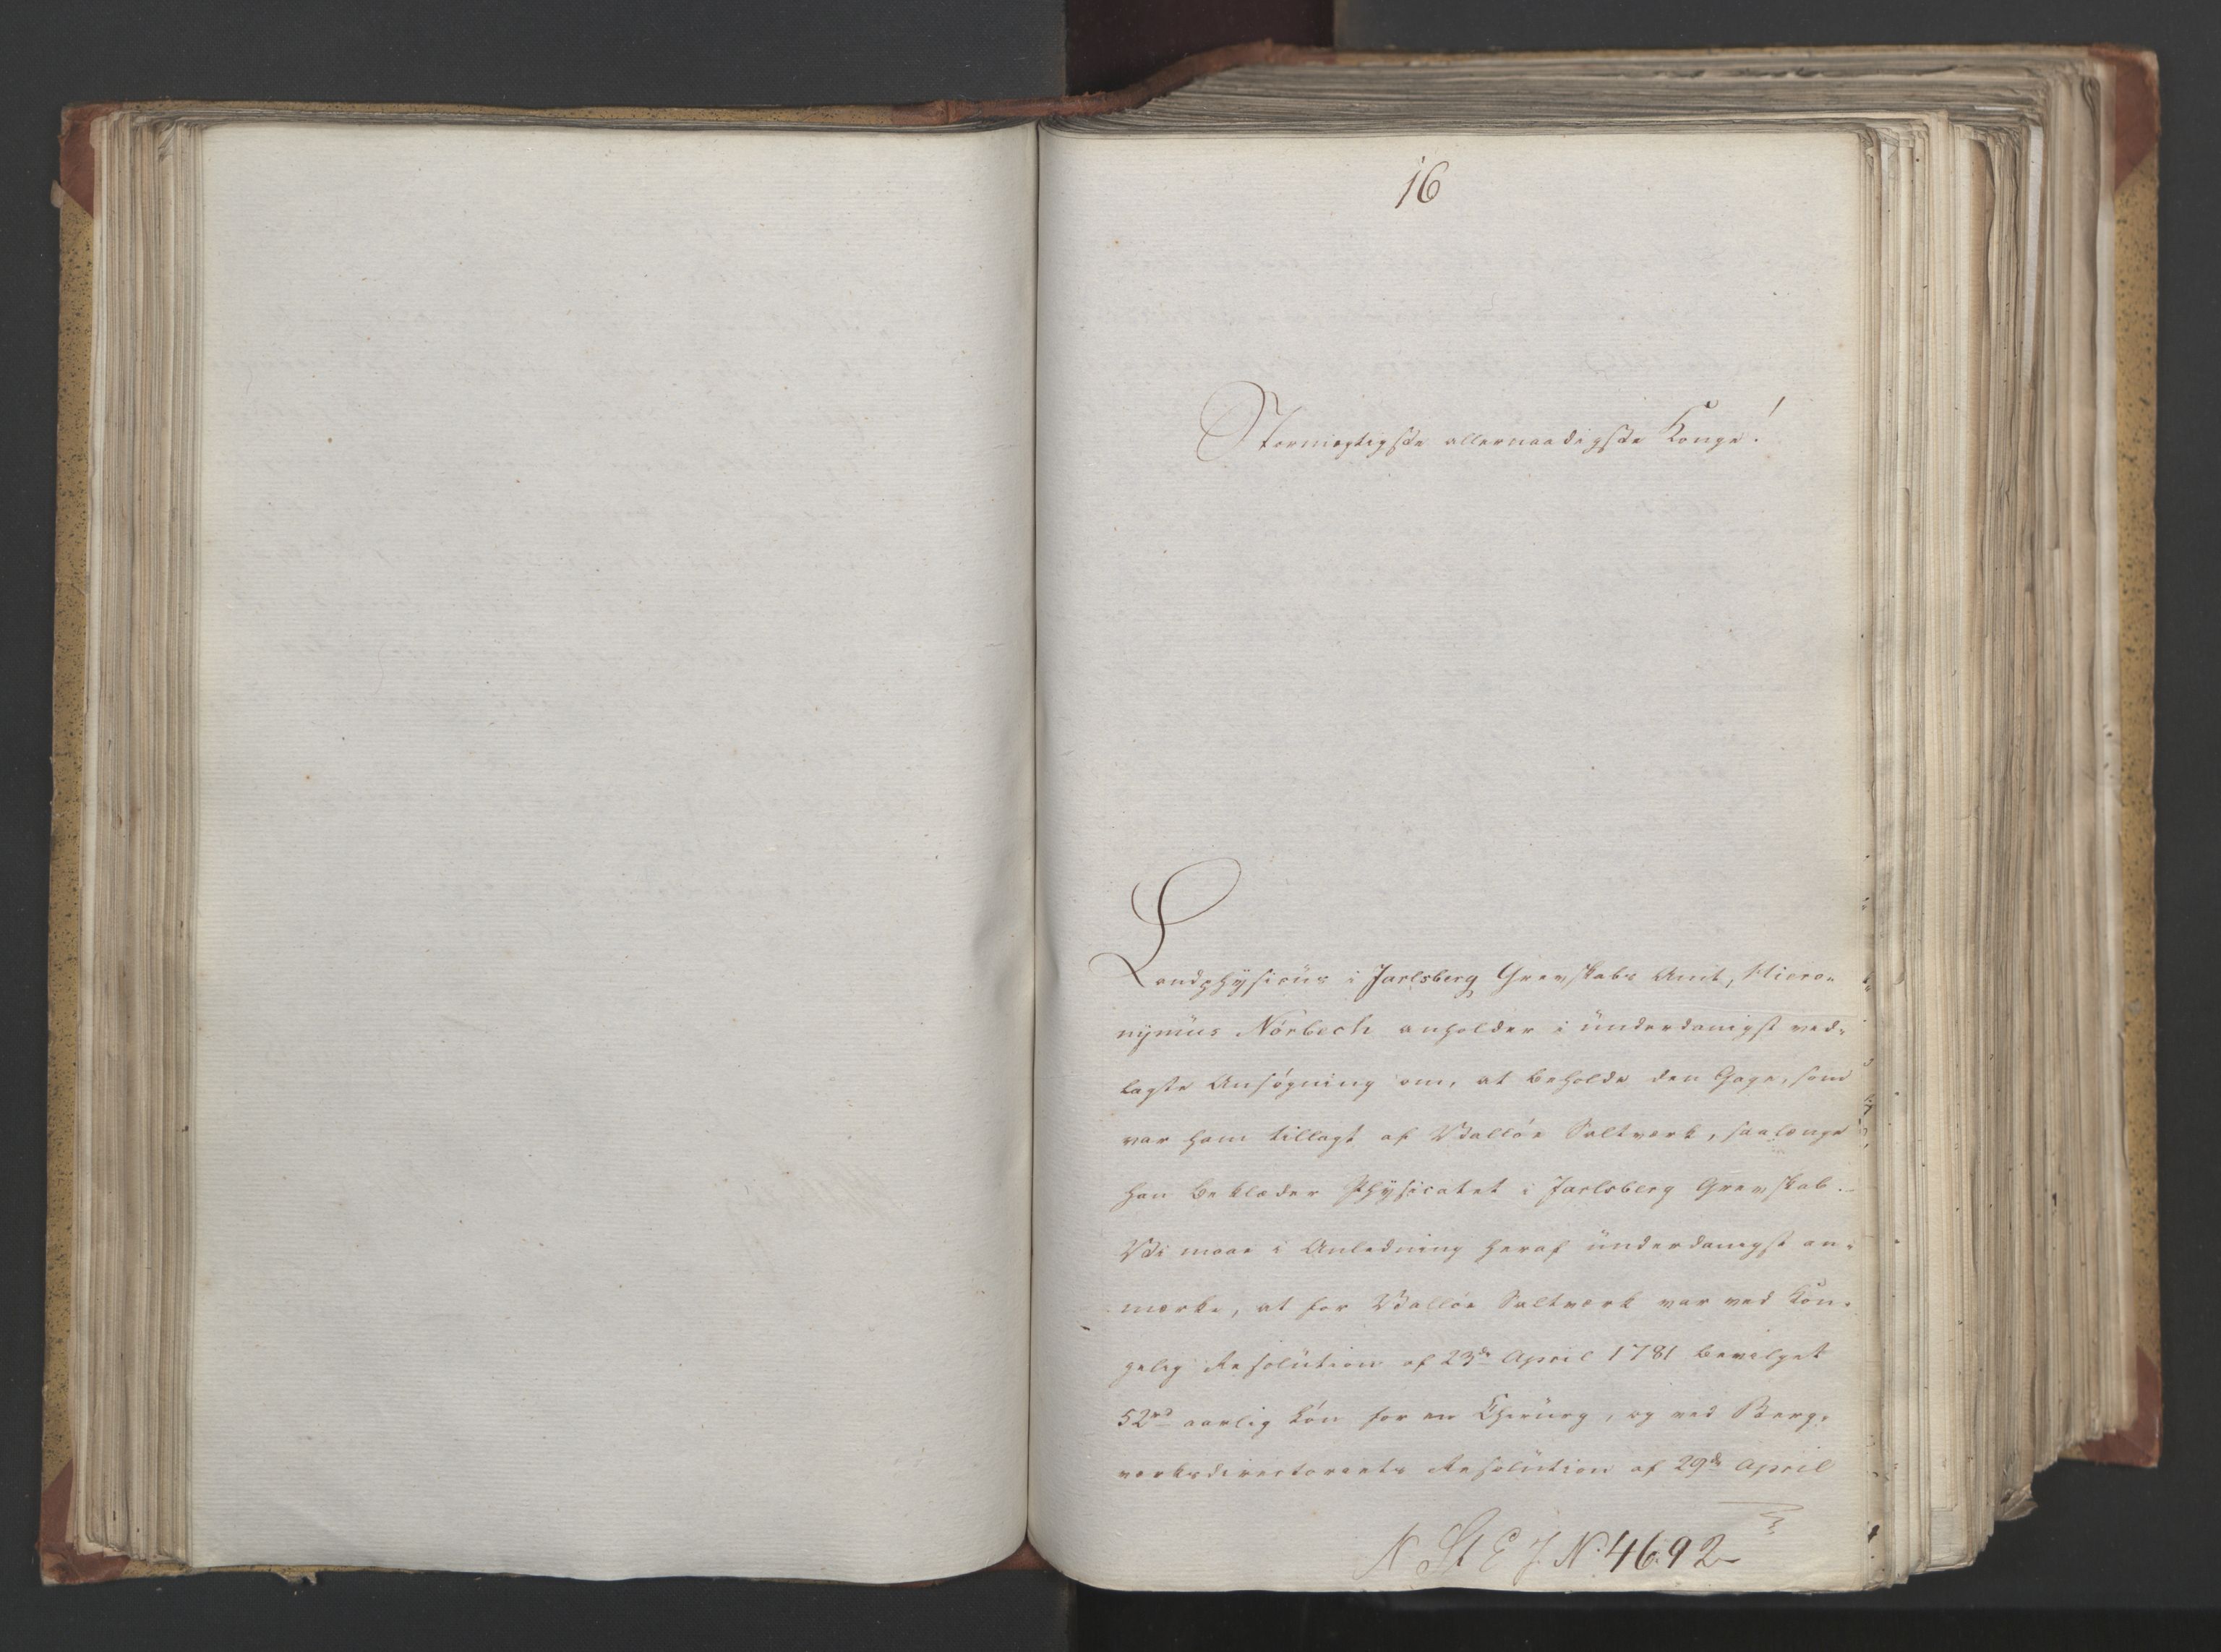 16
Stormægtigste allernaadigste Konge!
Landphysicus i Jarlsberg Grevskabs Amt, Hiero-
nymus Nörbech anholder i underdanigst ved-
lagte Ansögning om, at beholde den Gage, som
var ham tillagt af Valløe Saltværk, saalænge
han beklæder Physicatet i Jarlsberg Grevskab.
Vi maae i Anledning heraf underdanigst an-
mærke, at for Valløe Saltværk var ved Kon-
gelig Resolution af 23de April 1781 bevilget
52rd aarlig Lön for en Chirurg, og ved Berg-
værksdirectoreets Resolution af 29de April
N St E J. N. 4692